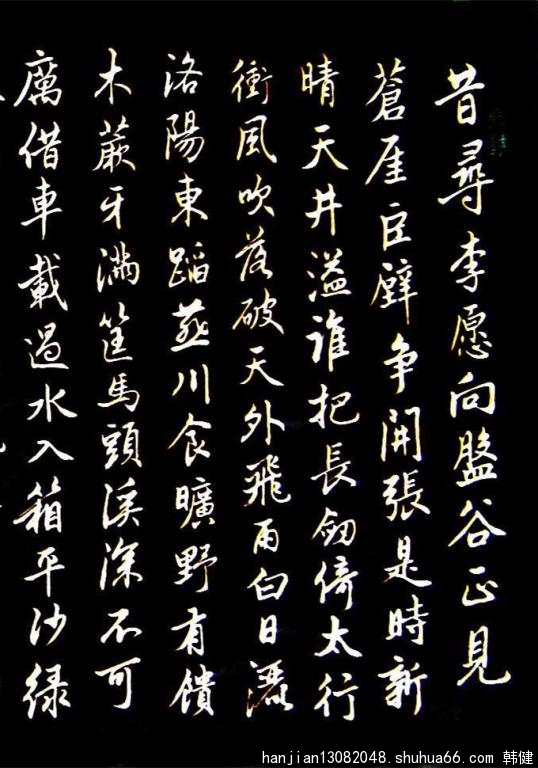 昔尋李愿向盤谷正見
蒼崖巨壁争開張是時新
晴天井溢誰把長劒倚太行
衝風吹落破天外飛雨白日灑
洛陽東蹈蒸川食曠野有饋
木蕨牙満筐馬頭溪深不可
厲借車載過水入箱平沙绿
hanjian13082048.shuhua66.com 韩健